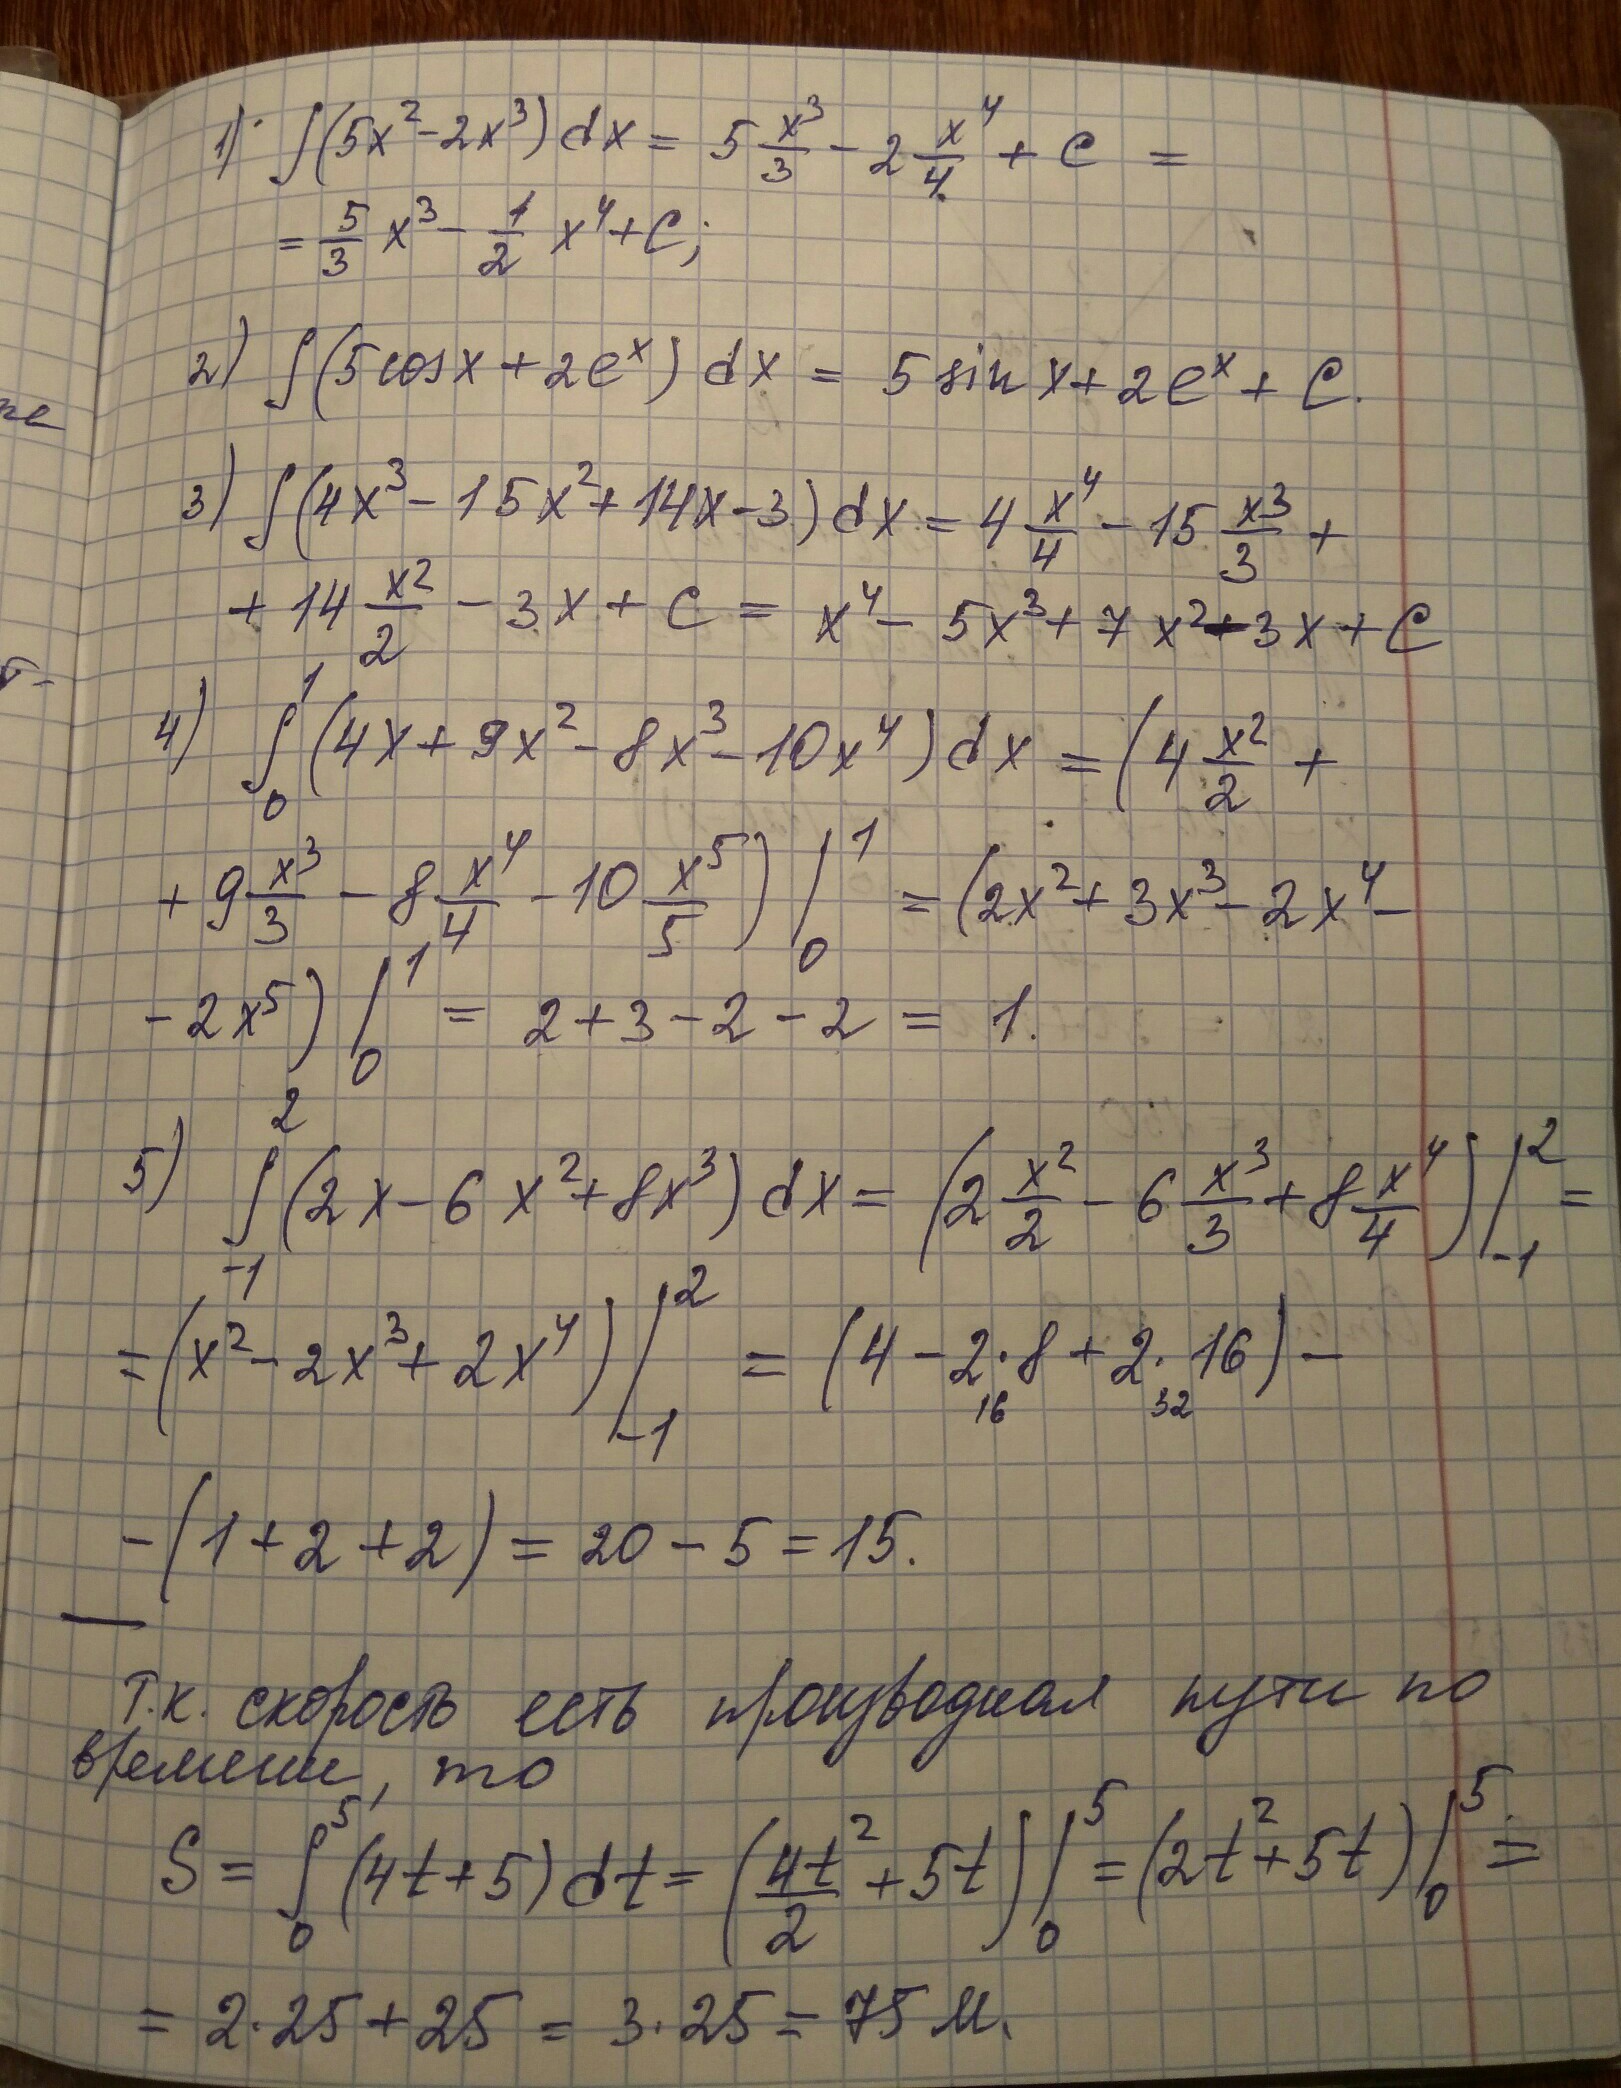 1) ∫(5x²-2x³)dx = 5 x³/3 - 2 x⁴/4 + C =
= 5/3 x³ - 1/2 x⁴ + C;
2) ∫(5cosx + 2eˣ) dx = 5 sin x + 2eˣ + C.
3) ∫(4x³ - 15x² + 14x - 3)dx = 4 x⁴/4 - 15 x³/3 +
+ 14 x²/2 - 3x + C = x⁴ - 5x³ + 7x² - 3x + C
4) ∫₀¹(4x + 9x² - 8x³ - 10x⁴)dx = (4 x²/2 +
+ 9 x³/3 - 8 x⁴/4 - 10 x⁵/5)|₀¹ = (2x² + 3x³ - 2x⁴ -
- 2x⁵)|₀¹ = 2 + 3 - 2 - 2 = 1.
5) ∫₋₁²(2x - 6x² + 8x³)dx = (2 x²/2 - 6 x³/3 + 8 x⁴/4)|₋₁² =
= (x² - 2x³ + 2x⁴)|₋₁² = (4 - 2·8 + 2·16) -
16 32
- (1 + 2 + 2) = 20 - 5 = 15.
Т.к. скорость есть производная пути по
времени, то
S = ∫₀⁵(4t + 5)dt = (4t²/2 + 5t)|₀⁵ = (2t² + 5t)|₀⁵ =
= 2·25 + 25 = 3·25 = 75 м.